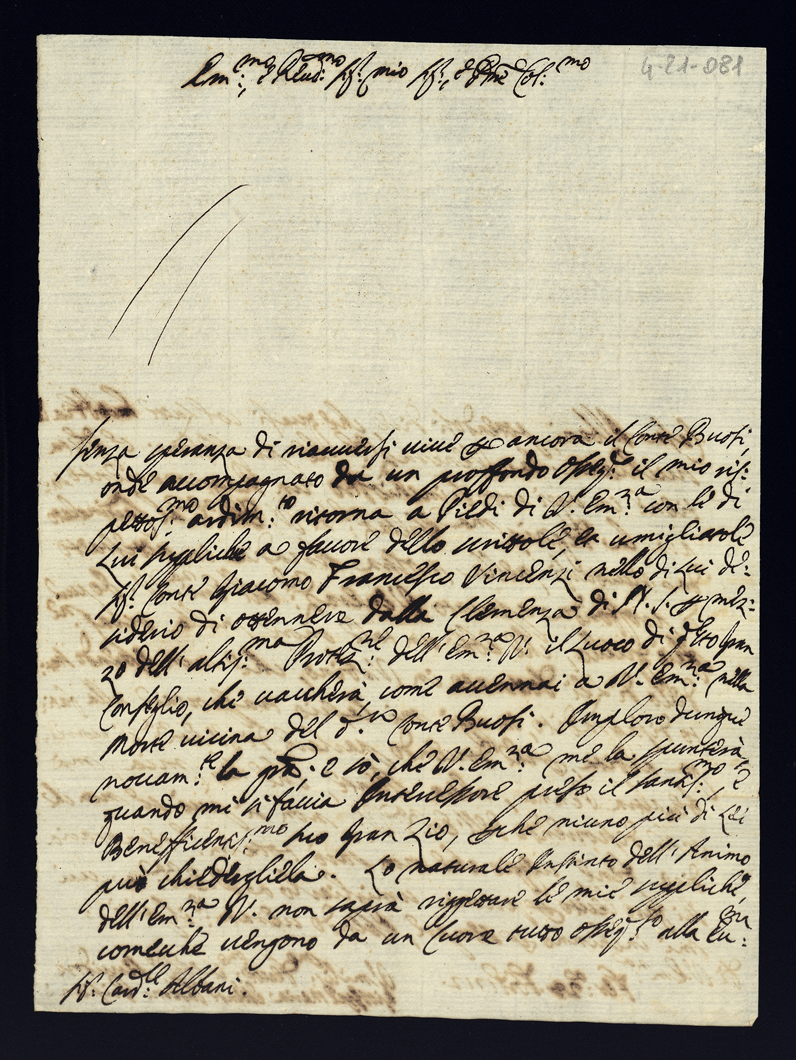 4-21-081
Em:mo, e Reud:mo Sig:r mio Sig:r, e Pñe Col:mo
Senza speranza di riauersi uiue ancora il Conte Buosi,
onde accompagnato da un proffondo osseq:o il mio ris-
pettos:mo ardim:to ritorna a Piedi di V. Em:za con le di
Lui suppliche a fauore dello
Sig:r Conte Giacomo Francesco Vincenzi nello di Lui de-
siderio di ottennere dalla Clemenza di N. S. mez-
zo dell'altis:ma Protez:ne dell'Em:za V. il Luoco di q̃sto Gran
Consiglio, che uaccherà, come accennai a V. Em:za nella
Morte uicina del d:o Conte Buosi. Imploro dunque
nouam:te la gr̃a, e sò, che V. Em:za me la spunterà,
quando mi si faccia Intercessore presso il Santis:mo, e
Benefficentis:mo suo Gran Zio, perche niuno più di Lei
può chiedergliela. Lo naturale Instinto dell'Animo
dell'Em:za V. non saprà riggettare le mie suppliche,
comeche uengono da un Cuore tutto osseq:so alla Eu:
Sig:r Card:le Albani.